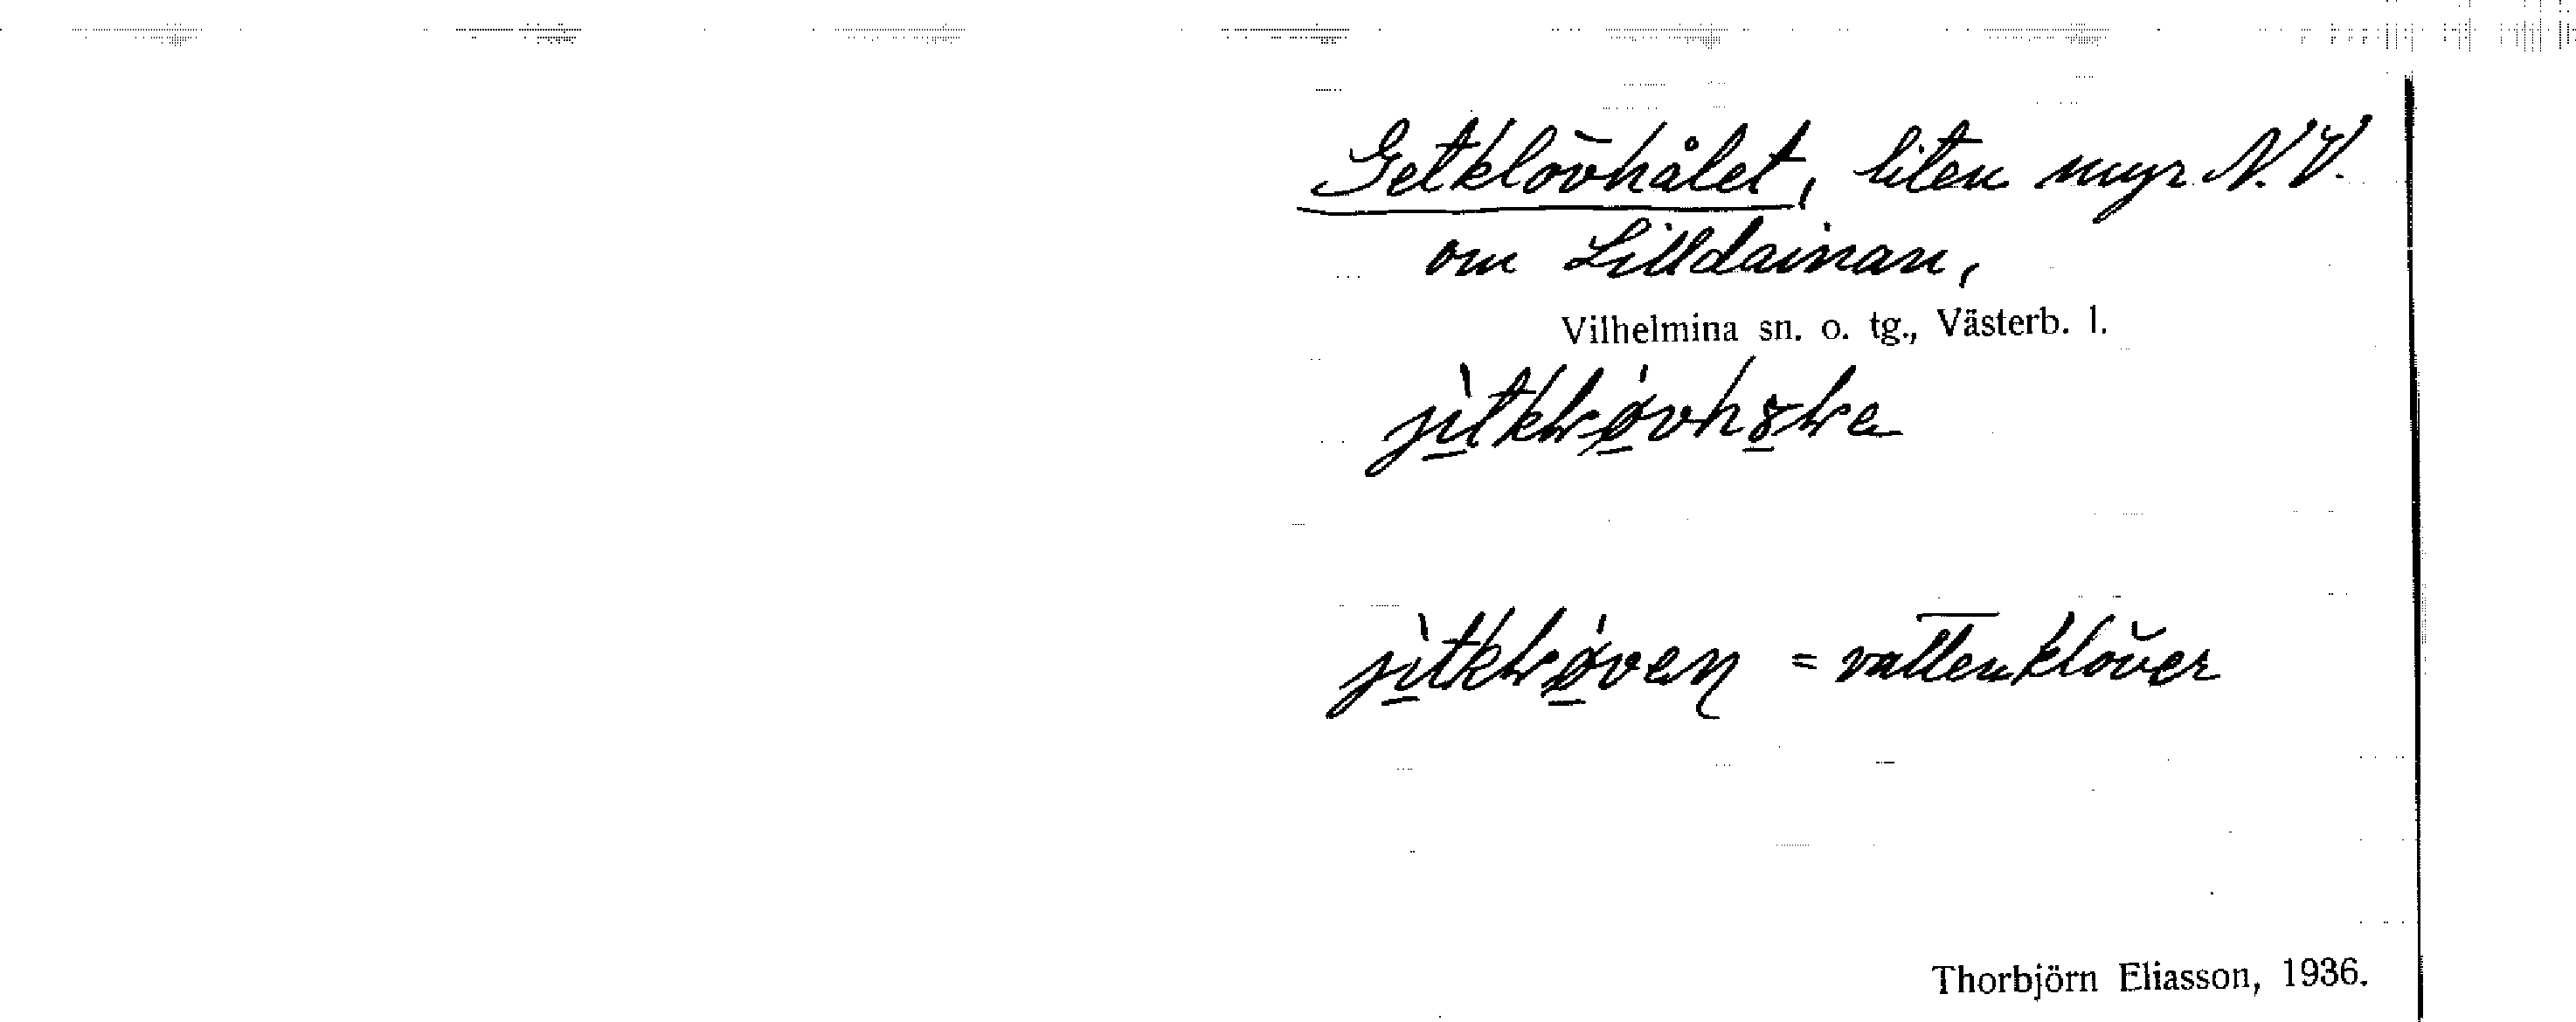 Getklövhålet, liten myr N.V.
om Lilldainan,
Vilhelmina sn. o. tg., Västerb. l.
= vattenklöver
Thorbjörn Eliasson, 1936.